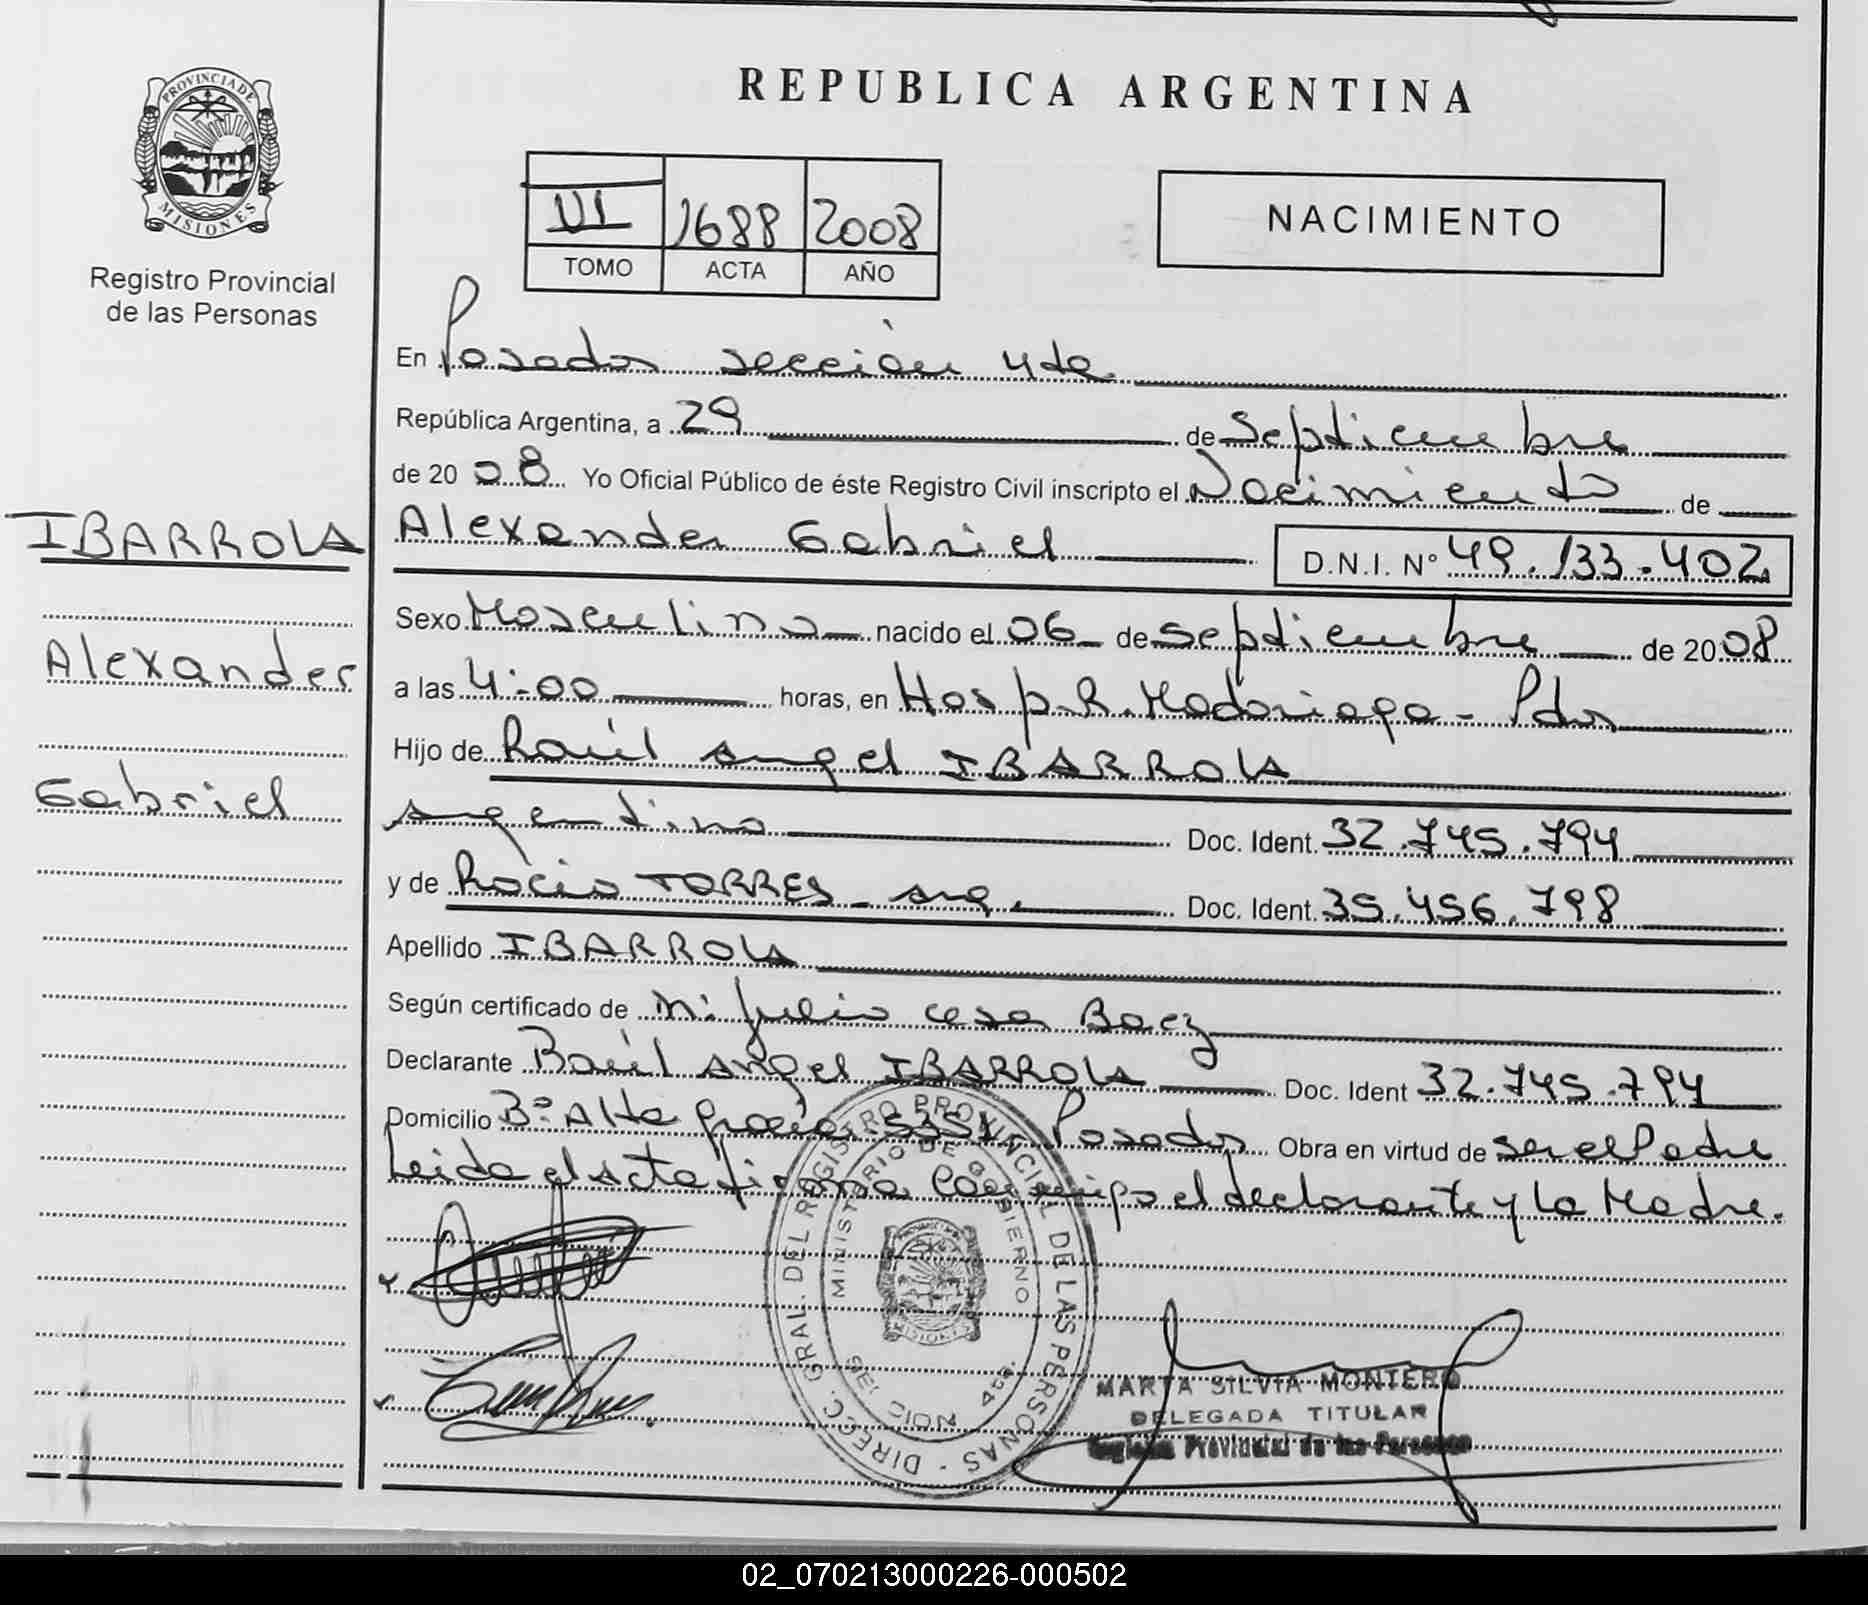 REPUBLICA ARGENTINA
PROVINCIA DE
MISIONES
Registro Provincial
de las Personas
VI 1688 2008
TOMO ACTA AÑO
NACIMIENTO
En Posadas sección 4ta
República Argentina, a 29 de Septiembre
de 2008 Yo Oficial Público de éste Registro Civil inscripto el Nacimiento de
IBARROLA
Alexander Gabriel D.N.I. Nº 49.133.402
Alexander
Gabriel
Sexo Masculino nacido el 06 de Septiembre de 2008
a las 4:00 horas, en Hosp. R. Madariaga - Pdas
Hijo de Raúl Angel IBARROLA
Argentino Doc. Ident. 32.745.794
y de Rocio TORRES - Arg. Doc. Ident. 35.456.798
Apellido IBARROLA
Según certificado de Julio Cesa Baez
Declarante Raúl Angel IBARROLA Doc. Ident 32.745.794
Domicilio Bº Alta Gracia Posadas Obra en virtud de ser el Padre
Leida el Acta firma conmigo el declarante y la Madre.
DIRECC. GRAL. DEL REGISTRO PROVINCIAL DE LAS PERSONAS
MINISTERIO DE GOBIERNO
SECCION 4ta.
MARTA SILVIA MONTERO
DELEGADA TITULAR
Registro Provincial de las Personas
02_070213000226-000502